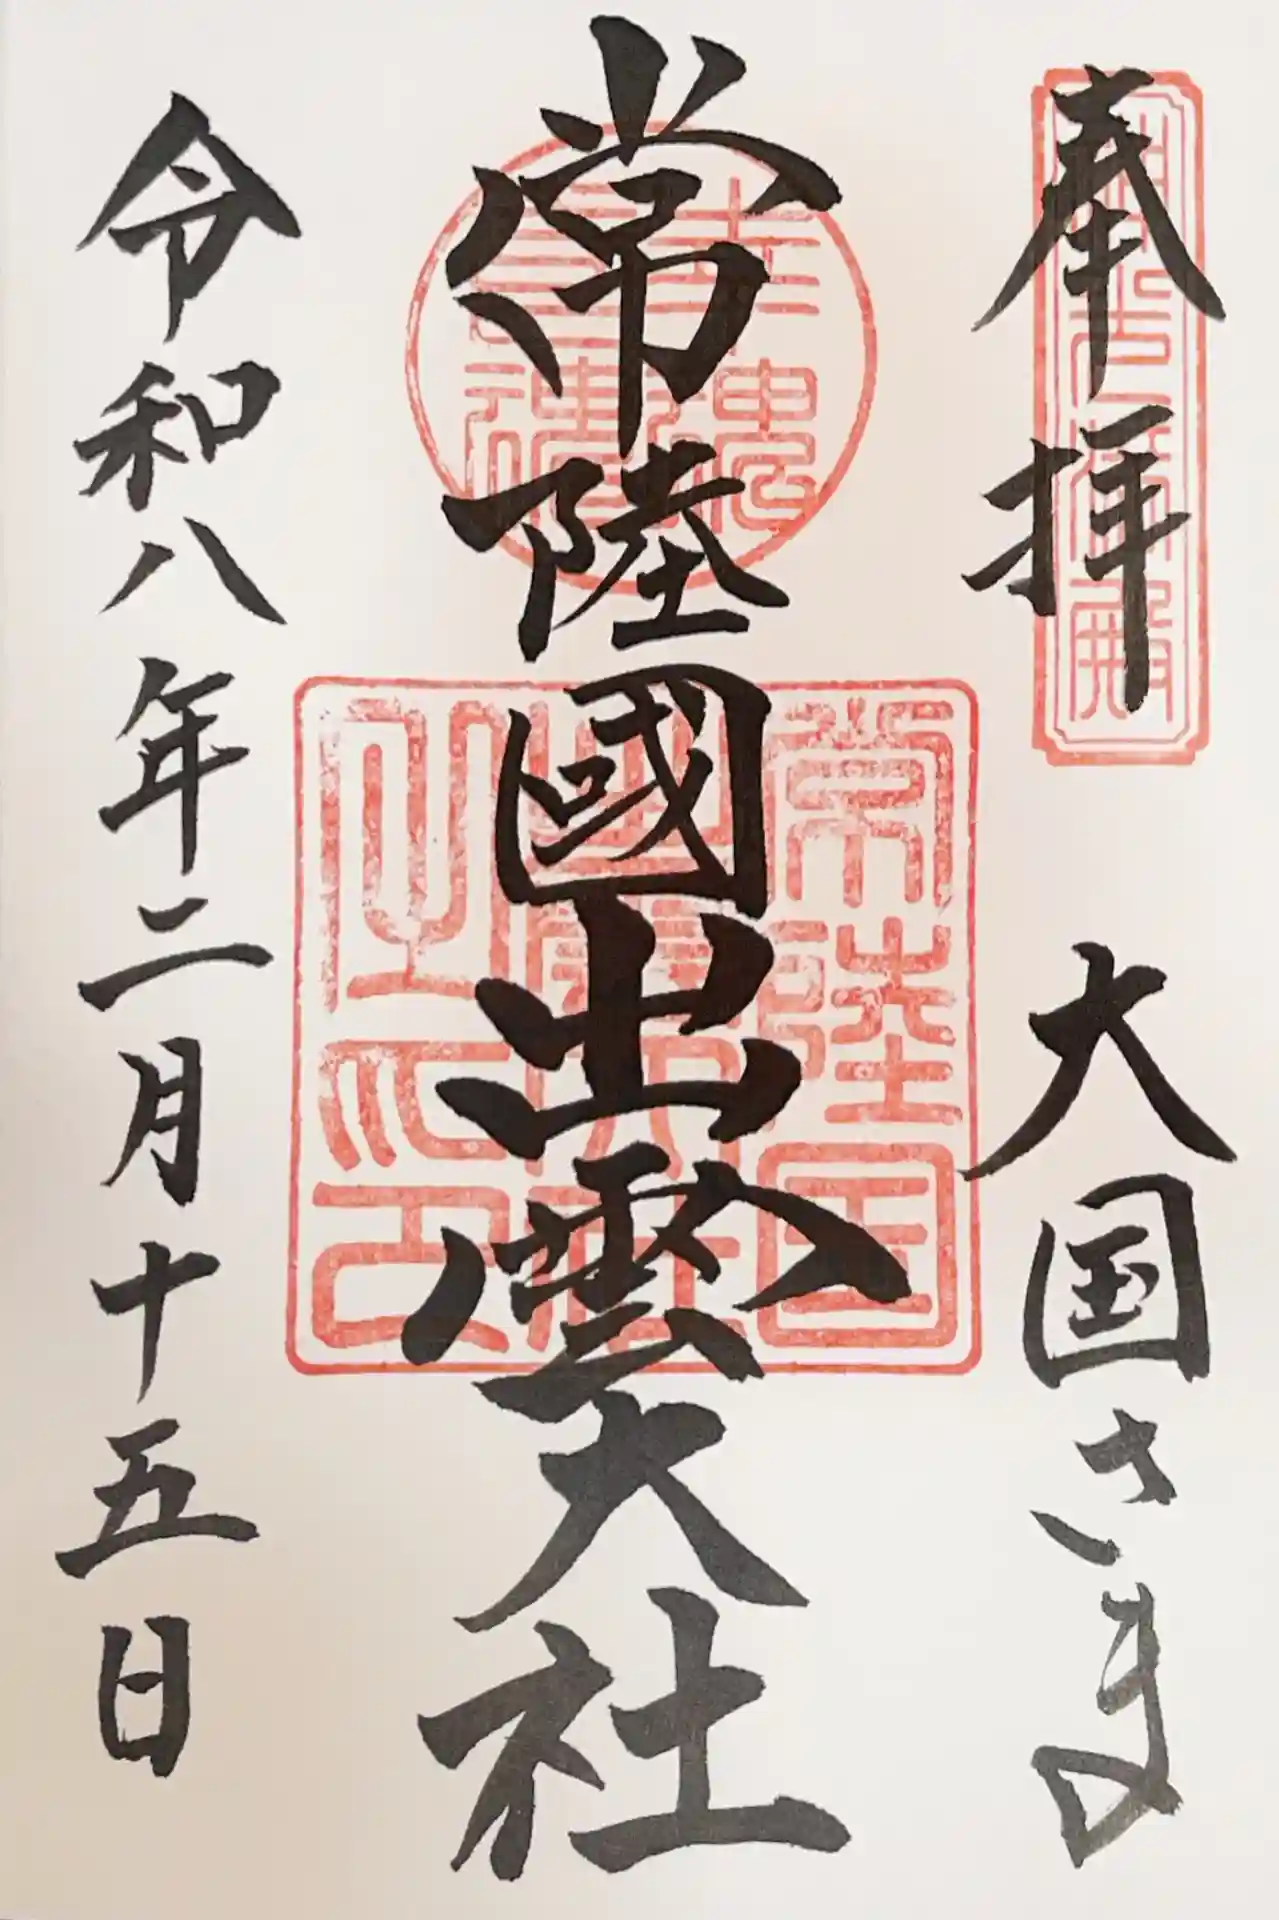 奉拝 大国さま
常陸國出雲大社
令和八年二月十五日
常陸国